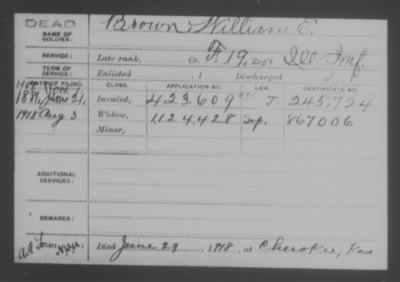 DEAD
NAME OF SOLDIER:
Brown William E.
SERVICE:
Late rank, Co. F, 19, Reg't Ill Inf.
TERM OF SERVICE:
Enlisted , 1 Discharged
DATE OF FILING. CLASS. APPLICATION NO. LAW. CERTIFICATE NO.
1881, June 21, Invalid, 423.609 J. 245,724
1918 Aug 3 Widow, 1124,428 Sep. 867006
Minor,
ADDITIONAL SERVICES:
REMARKS:
Died June 29, 1918, at Cherokee, Kas